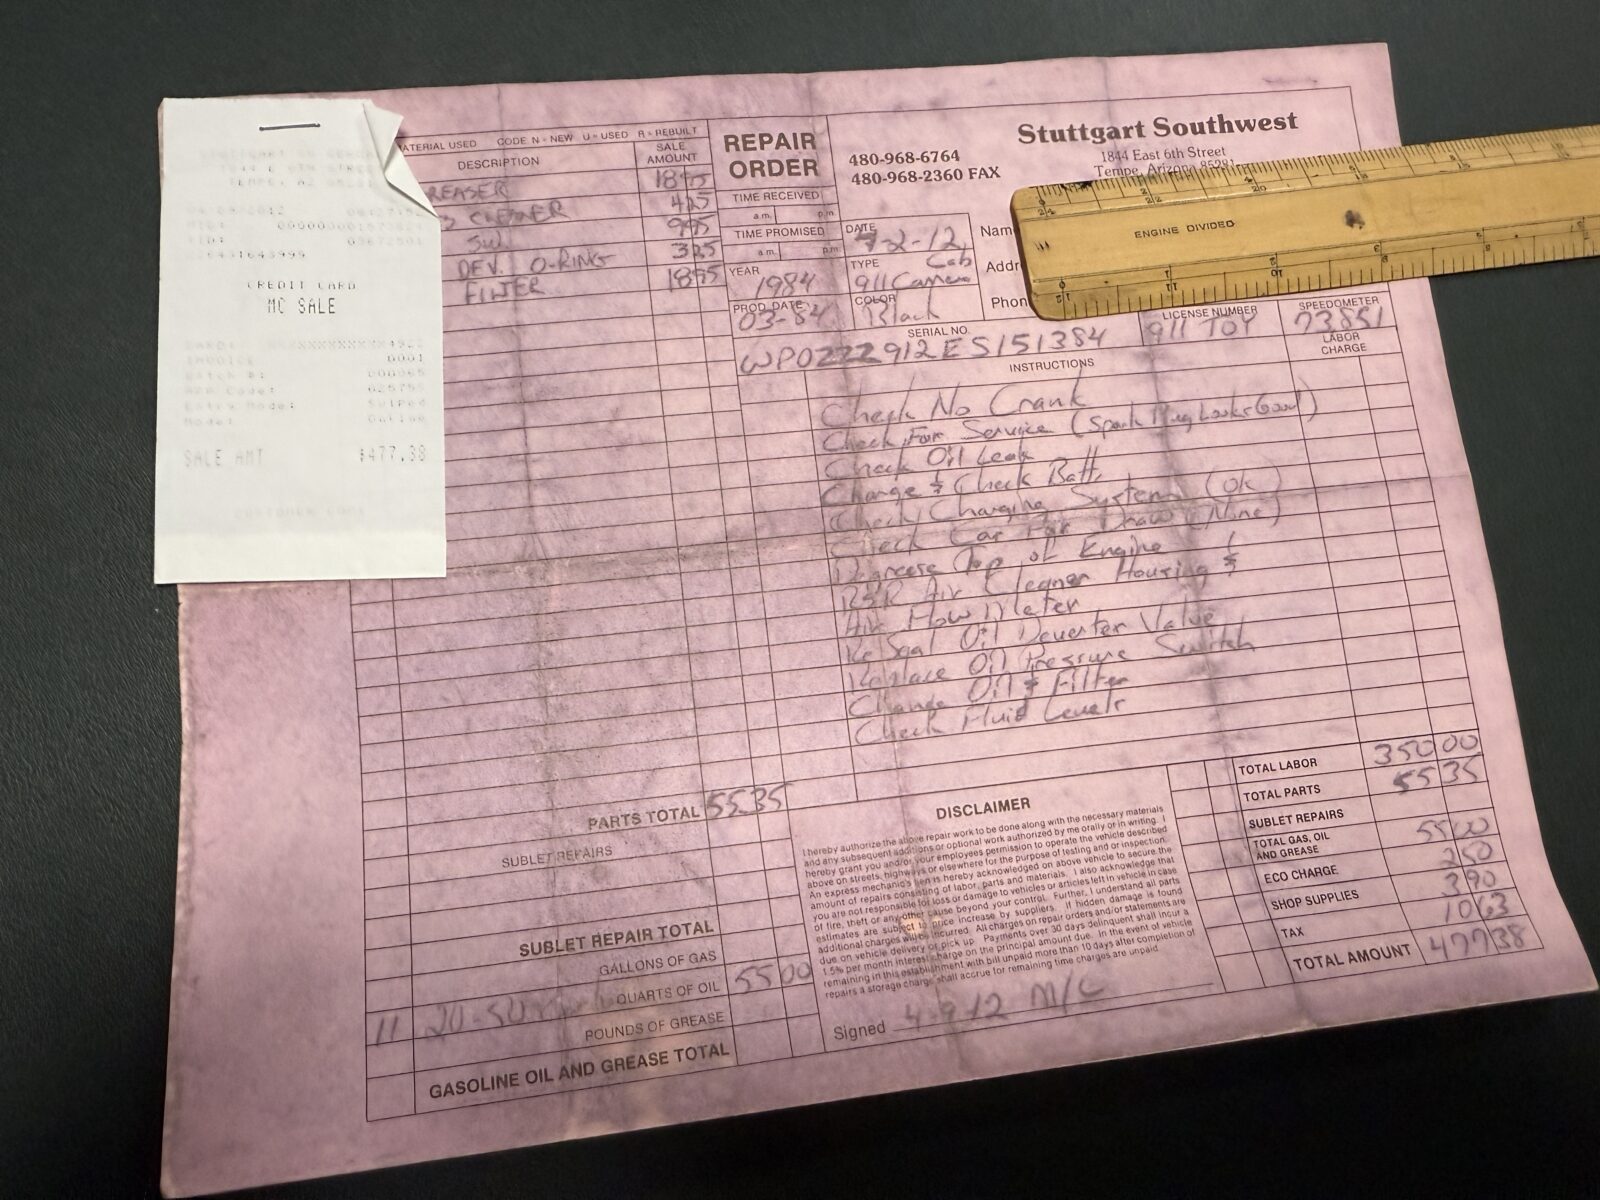 TEMPE, AZ 85281
04/09/2012
CREDIT CARD
MC SALE
INVOICE 0001
Batch #:
App Code:
Entry Mode: Swiped
Mode: Online
SALE AMT $477.38
CUSTOMER COPY
MATERIAL USED CODE N = NEW U = USED R = REBUILT
DESCRIPTION SALE AMOUNT
REASER 18 95
CLEANER 4 25
SW. 9 95
DEV. O-RING 3 25
FILTER 18 95
PARTS TOTAL 55 35
SUBLET REPAIRS
SUBLET REPAIR TOTAL
GALLONS OF GAS
11 20-50 QUARTS OF OIL 55 00
POUNDS OF GREASE
GASOLINE OIL AND GREASE TOTAL
REPAIR ORDER
TIME RECEIVED
a.m. p.m.
TIME PROMISED
a.m. p.m.
YEAR
1984
PROD. DATE
03-84
480-968-6764
480-968-2360 FAX
Stuttgart Southwest
1844 East 6th Street
Tempe, Arizona 85281
DATE
4-2-12
TYPE
911 Carrera Cab
COLOR
Black
Nam
Addr
Phon
SERIAL NO.
WP0ZZZ912ES151384
LICENSE NUMBER
911 TOY
SPEEDOMETER
73851
INSTRUCTIONS
LABOR CHARGE
Check No Crank
Check For Service (Spark Plug Looks Good)
Check Oil Leak
Charge & Check Batt.
Check Charging System (OK)
Check Car For Draw (None)
Degrease Top of Engine
R&R Air Cleaner Housing &
Air Flow Meter
ReSeal Oil Deverter Valve
Replace Oil Pressure Switch
Change Oil & Filter
Check Fluid Levels
DISCLAIMER
I hereby authorize the above repair work to be done along with the necessary materials
and any subsequent additions or optional work authorized by me orally or in writing. I
hereby grant you and/or your employees permission to operate the vehicle described
above on streets, highways or elsewhere for the purpose of testing and/or inspection.
An express mechanic's lien is hereby acknowledged on above vehicle to secure the
amount of repairs consisting of labor, parts and materials. I also acknowledge that
you are not responsible for loss or damage to vehicles or articles left in vehicle in case
of fire, theft or any other cause beyond your control. Further, I understand all parts
estimates are subject to price increase by suppliers. If hidden damage is found
additional charges will be incurred. All charges on repair orders and/or statements are
due on vehicle delivery or pick up. Payments over 30 days delinquent shall incur a
1.5% per month interest charge on the principal amount due. In the event of vehicle
remaining in this establishment with bill unpaid more than 10 days after completion of
repairs a storage charge shall accrue for remaining time charges are unpaid.
Signed 4-9-12 M/C
TOTAL LABOR 350 00
TOTAL PARTS 55 35
SUBLET REPAIRS
TOTAL GAS, OIL AND GREASE 55 00
ECO CHARGE 2 50
SHOP SUPPLIES 3 90
TAX 10 63
TOTAL AMOUNT 477 38
ENGINE DIVIDED